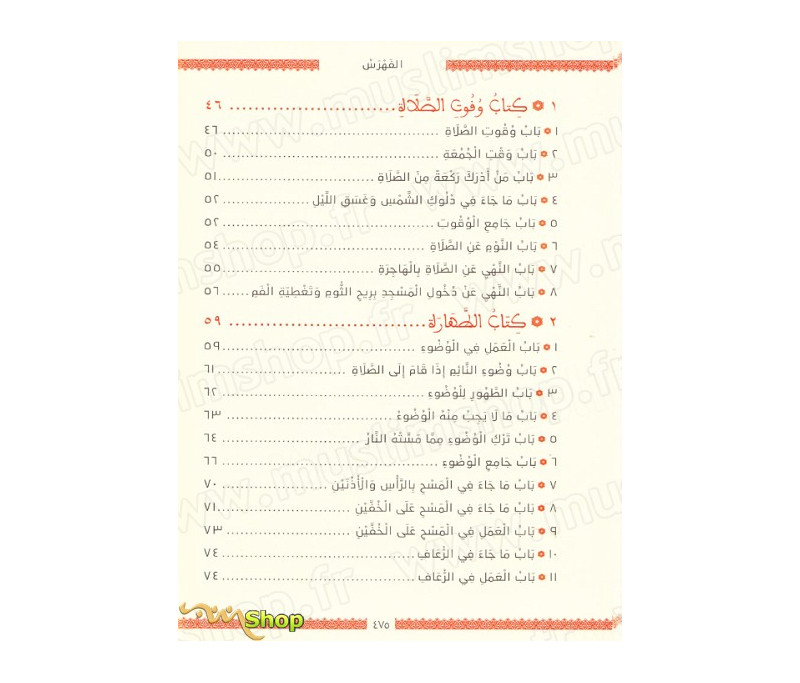 الفَهْرَسْ
١ كِتَابُ وُقُوتِ الصَّلَاةِ ........................... ٤٦
١ بَابُ وُقُوتِ الصَّلَاةِ ........................... ٤٦
٢ بَابُ وَقْتِ الْجُمُعَةِ ........................... ٥٠
٣ بَابُ مَنْ أَدْرَكَ رَكْعَةً مِنَ الصَّلَاةِ ........................... ٥١
٤ بَابُ مَا جَاءَ فِي دُلُوكِ الشَّمْسِ وَغَسَقِ اللَّيْلِ .................... ٥٢
٥ بَابُ جَامِعِ الْوُقُوتِ ........................... ٥٢
٦ بَابُ النَّوْمِ عَنِ الصَّلَاةِ ........................... ٥٤
٧ بَابُ النَّهْيِ عَنِ الصَّلَاةِ بِالْهَاجِرَةِ ........................... ٥٥
٨ بَابُ النَّهْيِ عَنْ دُخُولِ الْمَسْجِدِ بِرِيحِ الثُّومِ وَتَغْطِيَةِ الْفَمِ ...... ٥٦
٢ كِتَابُ الطَّهَارَةِ ........................... ٥٩
١ بَابُ الْعَمَلِ فِي الْوُضُوءِ ........................... ٥٩
٢ بَابُ وُضُوءِ النَّائِمِ إِذَا قَامَ إِلَى الصَّلَاةِ ........................... ٦١
٣ بَابُ الطَّهُورِ لِلْوُضُوءِ ........................... ٦٢
٤ بَابُ مَا لَا يَجِبُ مِنْهُ الْوُضُوءُ ........................... ٦٣
٥ بَابُ تَرْكِ الْوُضُوءِ مِمَّا مَسَّتْهُ النَّارُ ........................... ٦٤
٦ بَابُ جَامِعِ الْوُضُوءِ ........................... ٦٦
٧ بَابُ مَا جَاءَ فِي الْمَسْحِ بِالرَّأْسِ وَالْأُذُنَيْنِ ........................... ٧٠
٨ بَابُ مَا جَاءَ فِي الْمَسْحِ عَلَى الْخُفَّيْنِ ........................... ٧١
٩ بَابُ الْعَمَلِ فِي الْمَسْحِ عَلَى الْخُفَّيْنِ ........................... ٧٣
١٠ بَابُ مَا جَاءَ فِي الرُّعَافِ ........................... ٧٤
١١ بَابُ الْعَمَلِ فِي الرُّعَافِ ........................... ٧٤
Shop
٤٧٥
www.muslimshop.fr